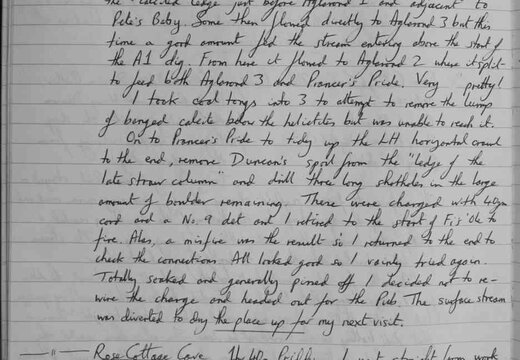 the calcited ledge just before Aglarond 1 and adjacent to
Pete's Baby. Some then flowed directly to Aglarond 3 but this
time a good amount fed the stream entering above the start of
the A1 dig. From here it flowed to Aglarond 2 where it split
to feed both Aglarond 3 and Prancer's Pride. Very pretty!
I took coal tongs into 3 to attempt to remove the lump
of banged calcite below the helictites but was unable to reach it.
On to Prancer's Pride to tidy up the LH horizontal crawl
to the end, remove Duncan's spoil from the "ledge of the
late straw column" and drill three long shotholes in the large
amount of boulder remaining. These were charged with 40gm
cord and a No. 9 det and I retired to the start of F.'s 'Ole to
fire. Alas, a misfire was the result so I returned to the end to
check the connections. All looked good so I vainly tried again.
Totally soaked and generally pissed off I decided not to re-
wire the charge and headed out for the Pub. The surface stream
was diverted to dry the place up for my next visit.
— 11 — Rose Cottage Cave straight from work